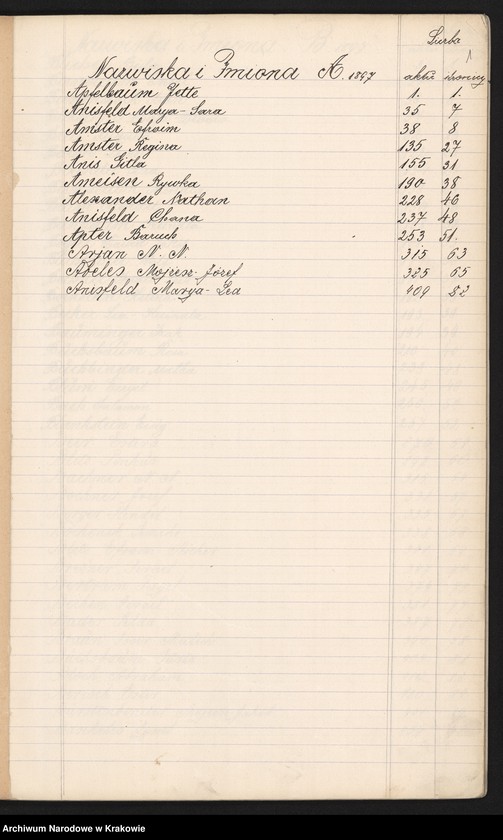 Liczba
Nazwiska i Imiona A. 1897 aktu strony
Apfelbaum Jette 1. 1.
Anisfeld Marya-Sara 35 7
Amster Efroim 38 8
Amster Regina 135 27
Anis Gitla 155 31
Ameisen Rywka 190 38
Alexander Nathan 228 46
Anisfeld Chana 237 48
Apter Baruch 253 51.
Arjan N. N. 315 63
Abeles Mojżesz-Józef 325 65
Anisfeld Marya-Lea 409 82
Archiwum Narodowe w Krakowie